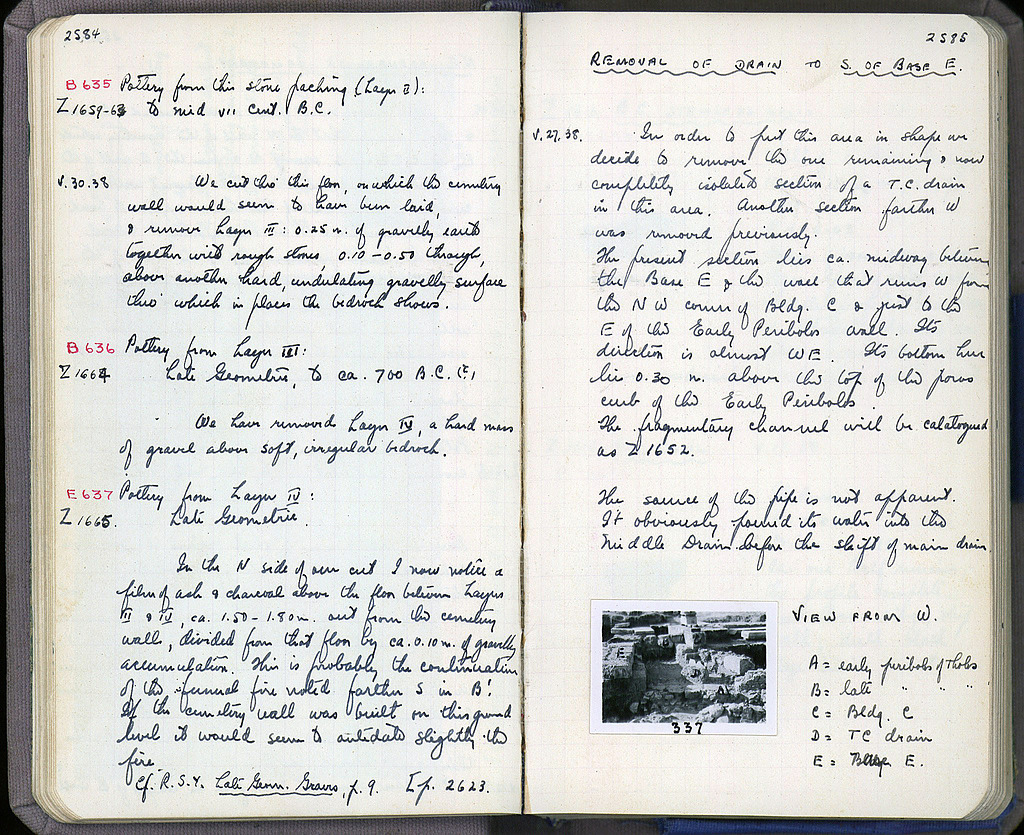 2584
B 635 Pottery from this stone packing (Layer II):
Z 1659-63 to mid VII cent. B.C.
V.30.38 We cut thro' this floor, on which the cemetery
wall would seem to have been laid,
& remove Layer III: 0.25 m. of gravelly earth
together with rough stones, 0.10-0.50 through,
above another hard, undulating gravelly surface
thro' which in places the bedrock shows.
B 636 Pottery from Layer III:
Z 1664 Late Geometric, to ca. 700 B.C. (?)
We have removed Layer IV, a hard mass
of gravel above soft, irregular bedrock.
E 637 Pottery from Layer IV:
Z 1665. Late Geometric.
In the N side of our cut I now notice a
film of ash & charcoal above the floor between Layers
III & IV, ca. 1.50-1.80 m. out from the cemetery
wall, divided from that floor by ca. 0.10 m. of gravelly
accumulation. This is probably the continuation
of the funeral fire noted farther S in B'.
If the cemetery wall was built on this ground
level it would seem to antidate slightly the
fire.
Cf. R.S.Y. Late Geom. Graves, p. 9. [p. 2623.
2585
REMOVAL OF DRAIN TO S. OF BASE E.
V.27.38. In order to put this area in shape we
decide to remove the one remaining & now
completely isolated section of a T.C. drain
in this area. Another section farther W
was removed previously.
The present section lies ca. midway between
the Base E & the wall that runs W from
the NW corner of Bldg. C & just to the
E of the Early Peribolos wall. Its
direction is almost WE. Its bottom here
lies 0.30 m. above the top of the poros
curb of the Early Peribolos.
The fragmentary channel will be catalogued
as Z 1652.
The source of the pipe is not apparent.
It obviously poured its water into the
Middle Drain before the shift of main drain.
E
337
VIEW FROM W.
A = early peribolos of Tholos
B = late " " "
C = Bldg. C
D = TC drain
E = Base E.